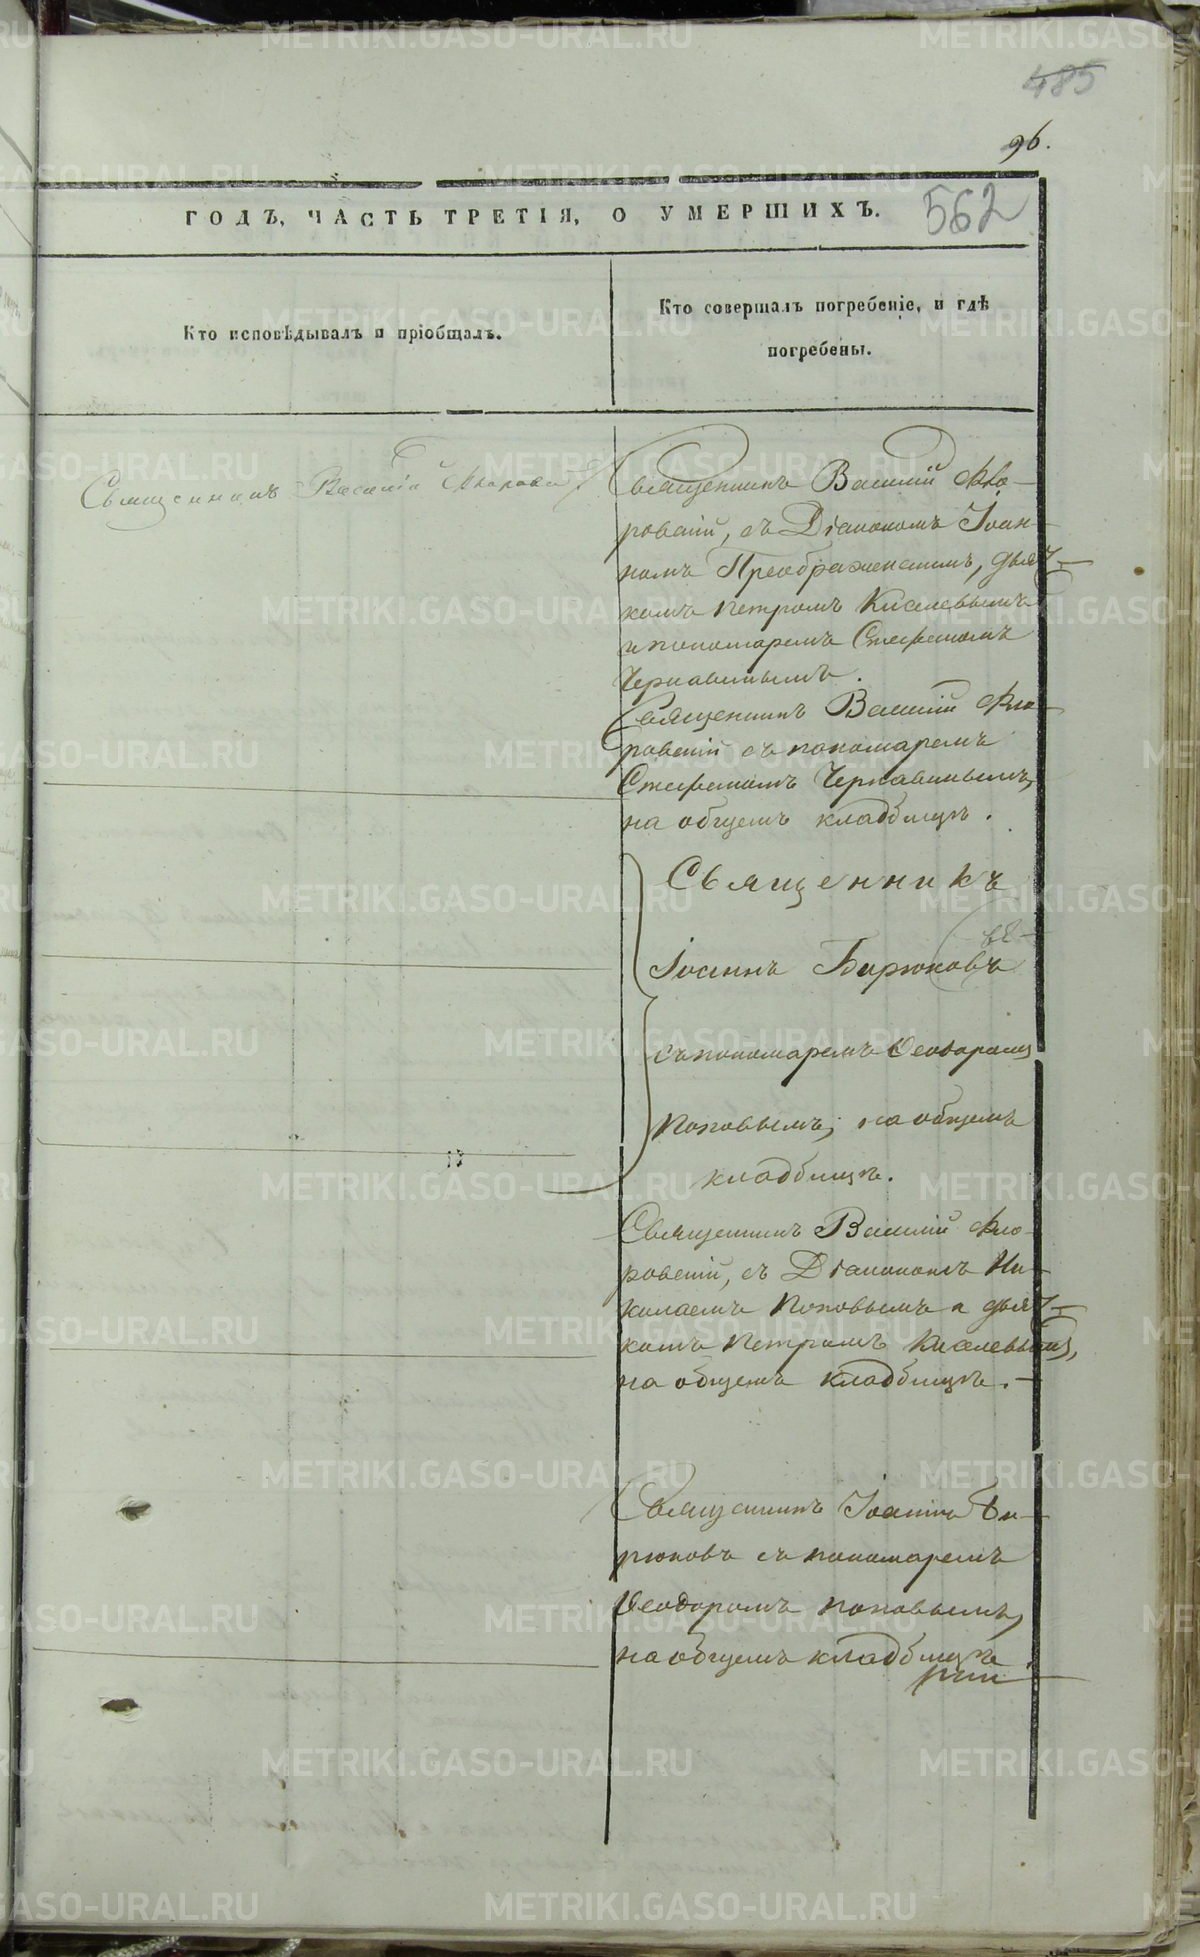 485
96.
562
ГОДЪ, ЧАСТЬ ТРЕТІЯ, О УМЕРШИХЪ.
Кто исповѣдывалъ и пріобщалъ.
Кто совершалъ погребеніе, и гдѣ
погребены.
Священникъ Василій Флоровскій
Священникъ Василій Фло-
ровскій, съ Діакономъ Іоан-
номъ Преображенскимъ, дьяч-
комъ Петромъ Киселевымъ
и пономаремъ Стефаномъ
Чернавинымъ.
Священникъ Василій Фло-
ровскій съ пономаремъ
Стефаномъ Чернавинымъ,
на общемъ кладбищѣ.
Священникъ
Іоаннъ Бирюковъ
съ пономаремъ Ѳеодоромъ
Поповымъ, на общемъ
кладбищѣ.
Священникъ Василій Фло-
ровскій, съ Діакономъ Ни-
колаемъ Поповымъ и дьяч-
комъ Петромъ Киселевымъ,
на общемъ кладбищѣ.
Священникъ Іоаннъ Би-
рюковъ съ пономаремъ
Ѳеодоромъ Поповымъ,
на общемъ кладбищѣ.
METRIKI.GASO-URAL.RU